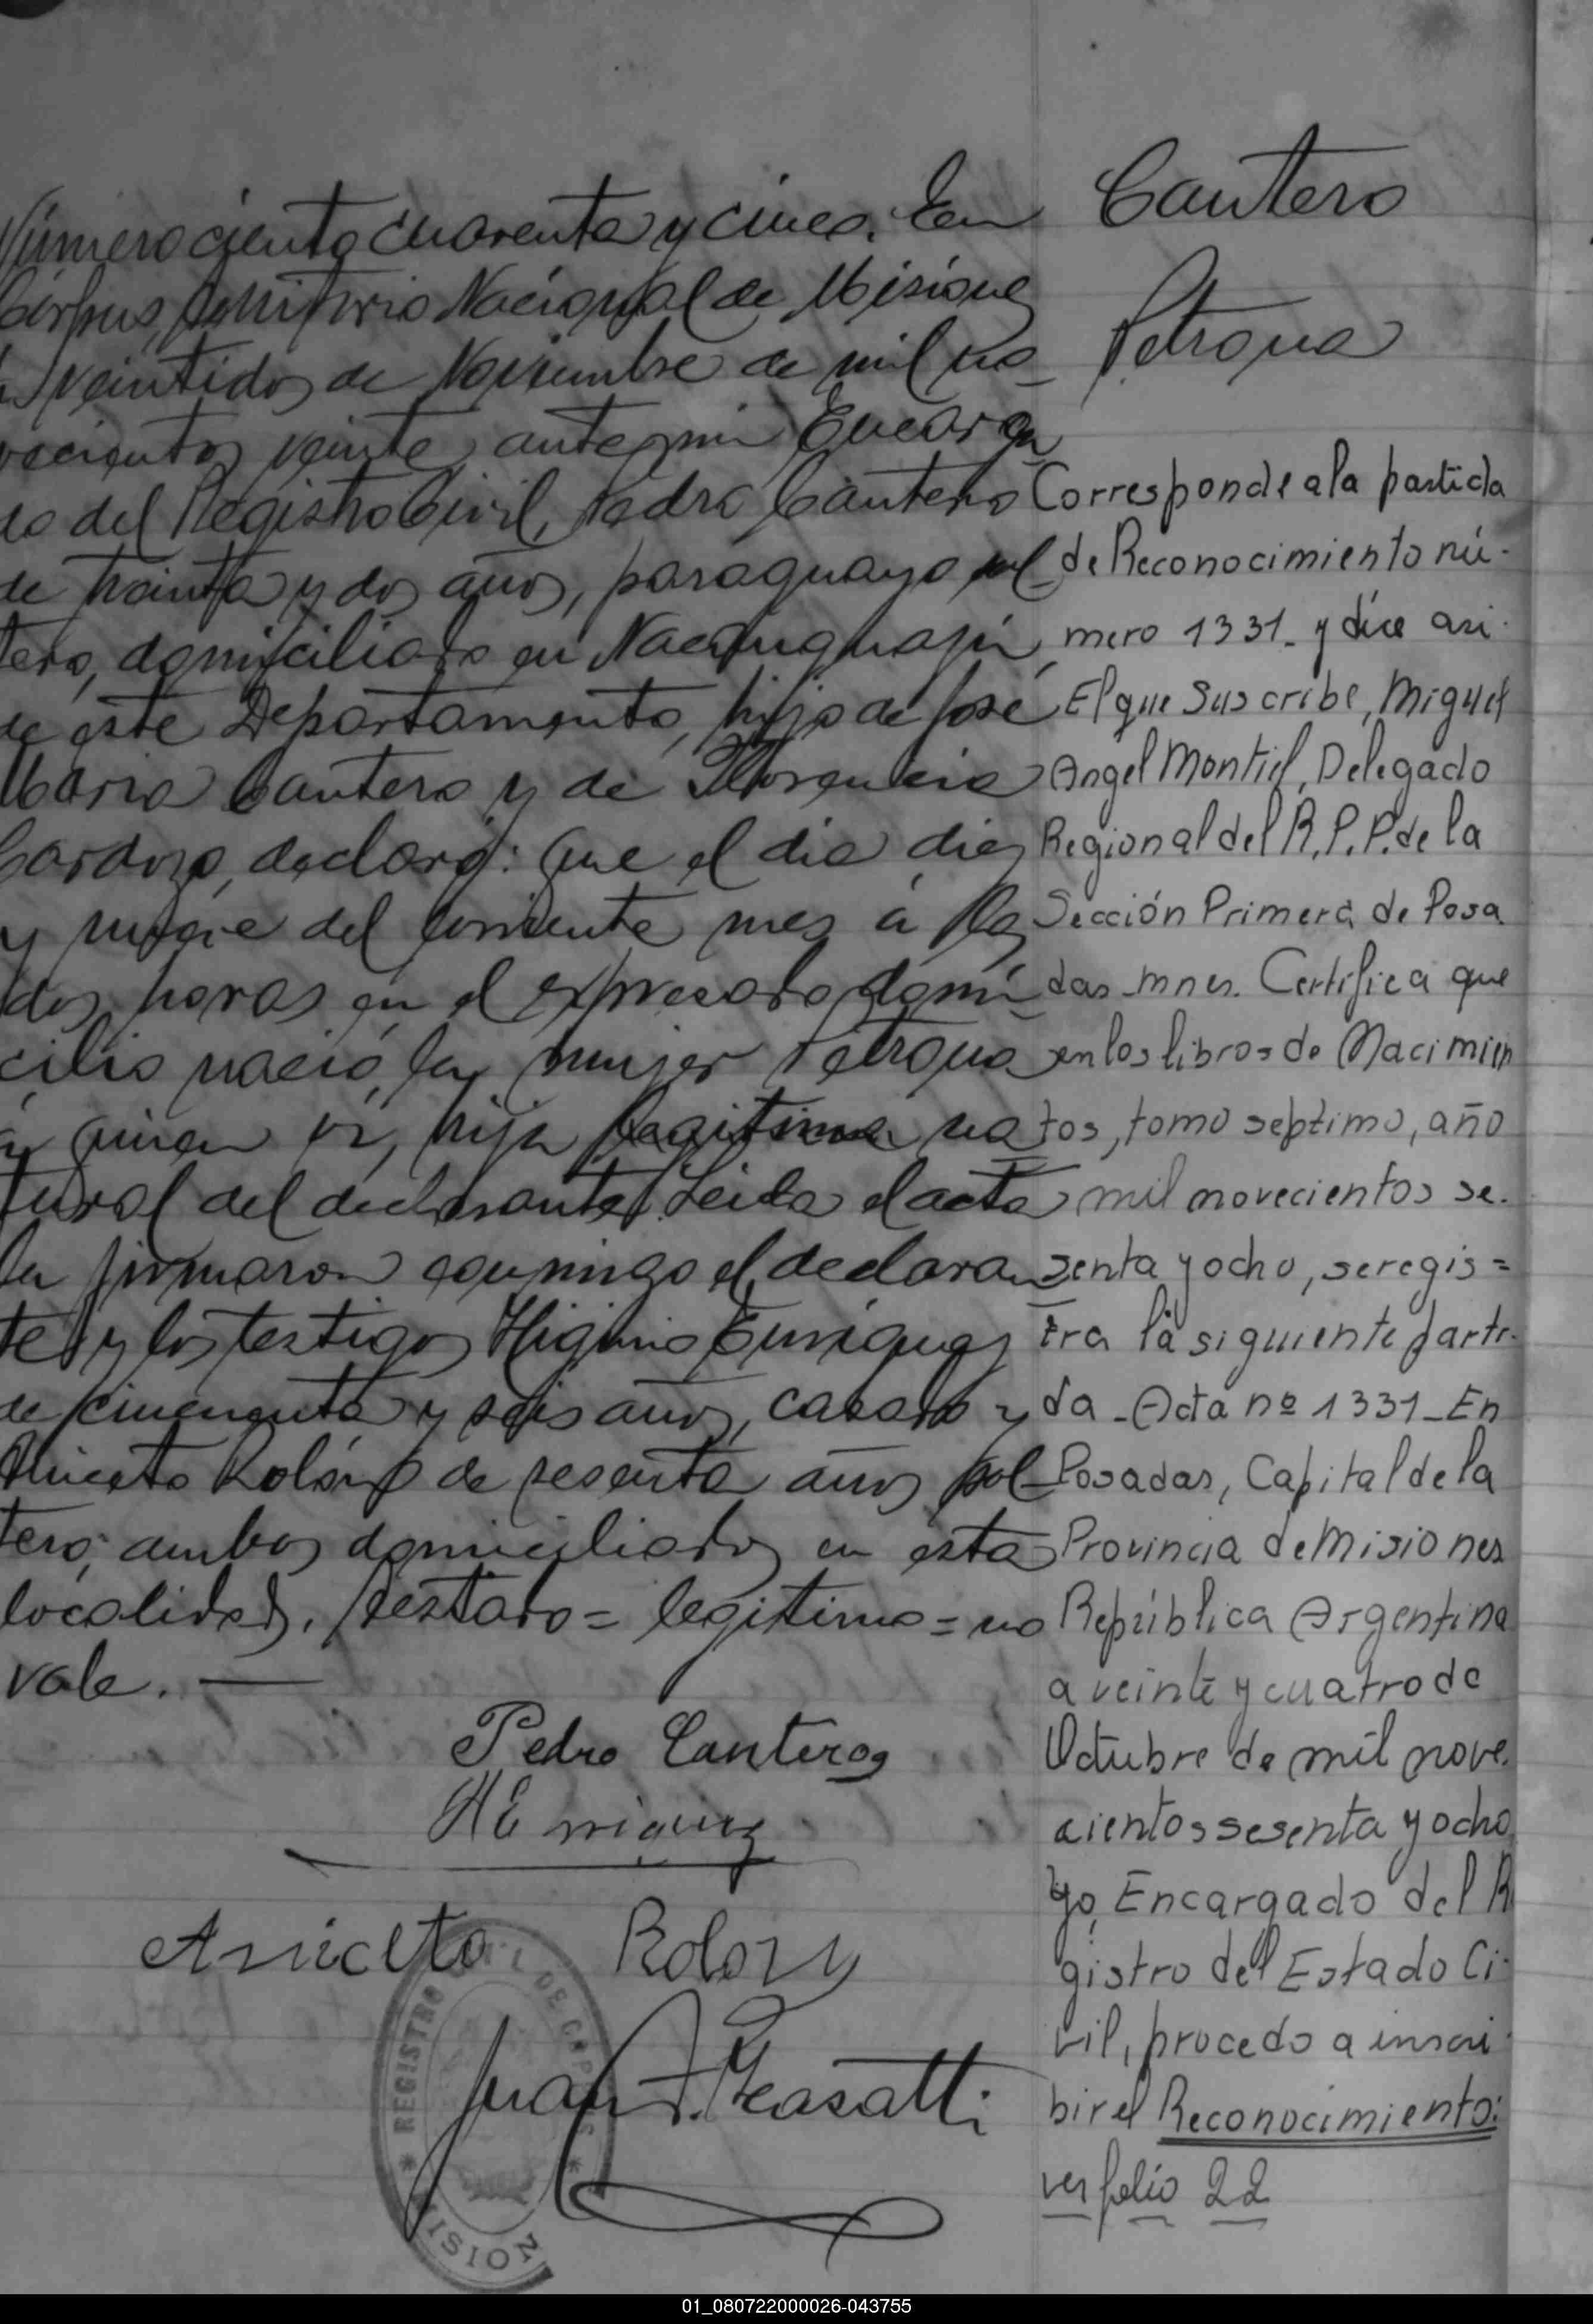 Número ciento cuarenta y cinco. En
Córpus, Territorio Nacional de Misiones
a veintidos de Noviembre de mil no-
vecientos veinte, ante mi Encarga
do del Registro Civil, Pedro Cantero
de treinta y dos años, paraguayo sol-
tero, domiciliado en
de este Departamento, hijo de José
Maria Cantero y de Florencia
Cardozo, declaró: Que el dia diez
y nueve del corriente mes á las
dos horas en el expresado domi-
cilio nació la mujer Petrona
á quien vi, hija legitima na
tural del declarante. Leida el acta
la firmaron conmigo el declaran
te y los testigos Higinio Enriquez
de cincuenta y seis años, casado y
Aniceto Rolón de sesenta años sol-
tero, ambos domiciliados en esta
localidad. Testado = legitima = no
vale. —
Pedro Cantero
HEnriquez
Aniceto Rolon
Juan
REGISTRO CIVIL DE CORPUS
MISION
Cantero
Petrona
Corresponde a la partida
de Reconocimiento nú-
mero 1331. y dice asi.
El que Suscribe, Miguel
Angel Montiel, Delegado
Regional del R.P.P. de la
Sección Primera de Posa
das Mnes. Certifica que
en los libros de Nacimien
tos, tomo septimo, año
mil novecientos se.
senta y ocho, se regis=
tra la siguiente parti-
da - Acta nº 1331 - En
Posadas, Capital de la
Provincia de Misiones
República Argentina
a veinte y cuatro de
Octubre de mil nove.
cientos sesenta y ocho
yo, Encargado del R
gistro del Estado Ci-
vil, procedo a inscri
bir el Reconocimiento:
ver folio 22
01_080722000026-043755